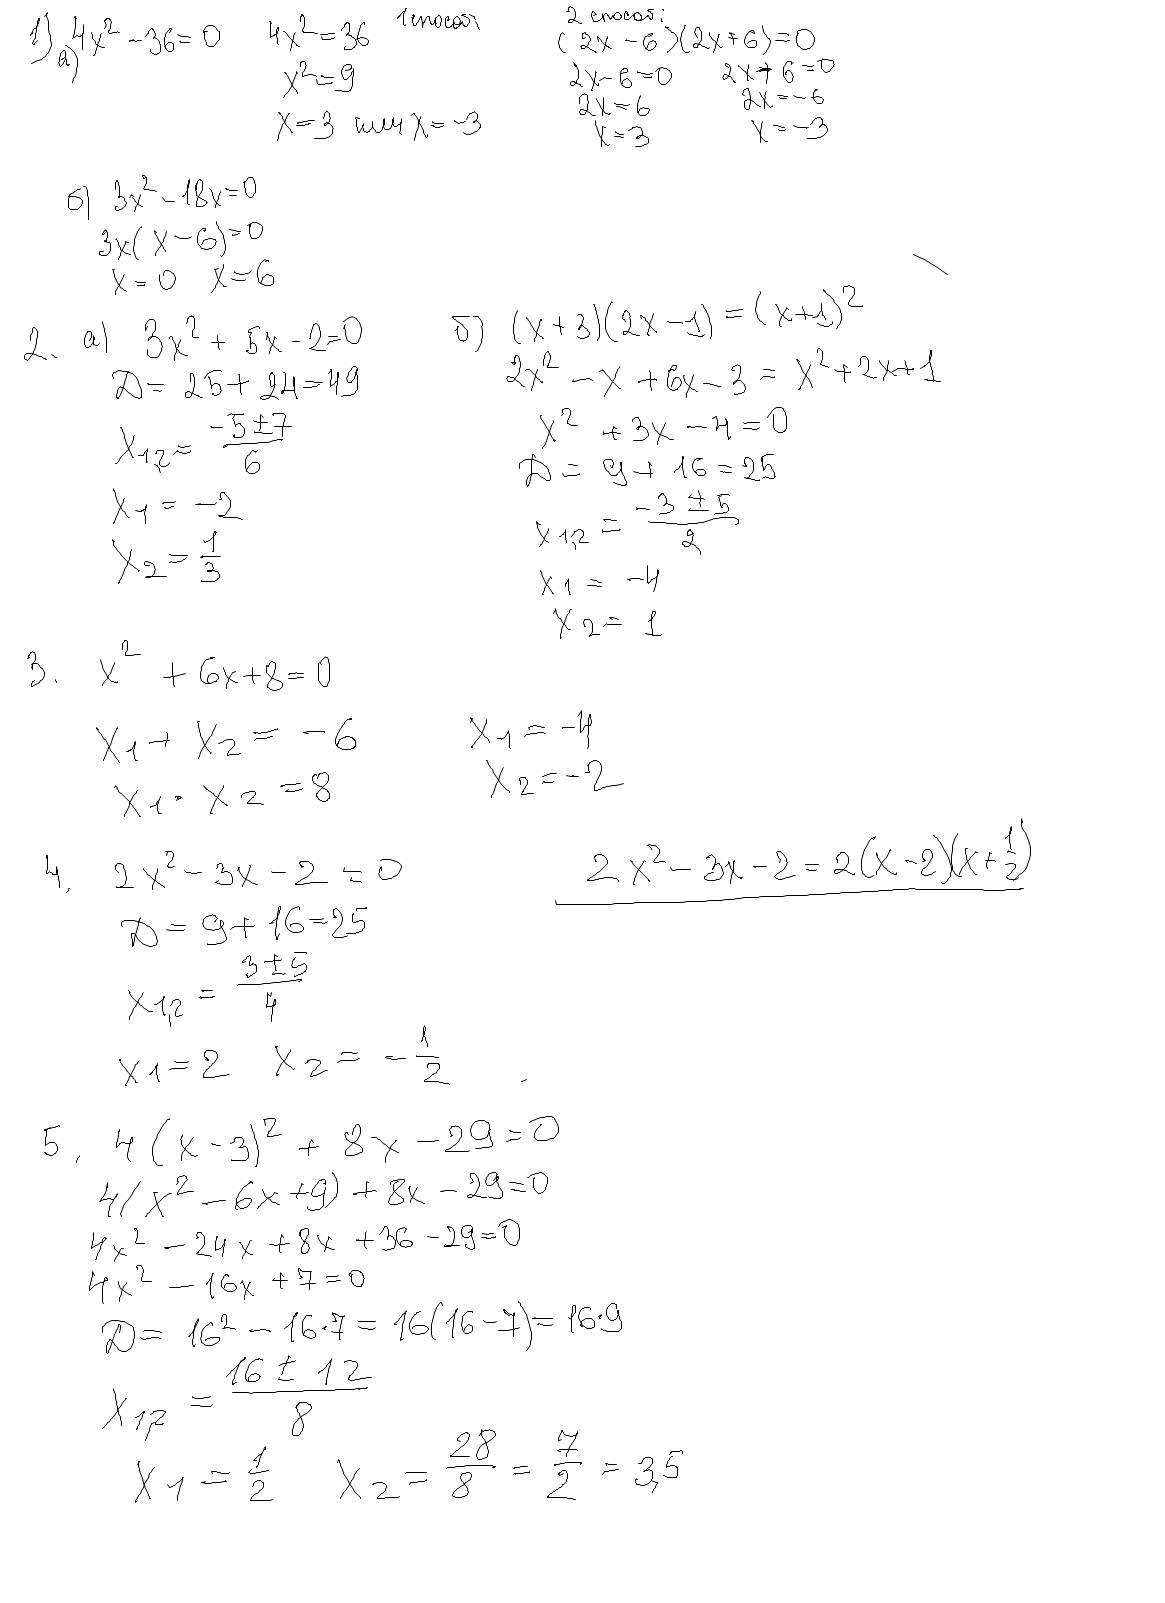 1) а) 4x² - 36 = 0    4x² = 36    1 способ    2 способ:
x² = 9    (2x - 6)(2x + 6) = 0
x = 3 или x = -3    2x - 6 = 0    2x + 6 = 0
2x = 6    2x = -6
x = 3    x = -3
б) 3x² - 18x = 0
3x(x - 6) = 0
x = 0    x = 6
2. а) 3x² + 5x - 2 = 0
Д = 25 + 24 = 49
x1,2 = (-5 ± 7)/6
x1 = -2
x2 = 1/3
б) (x + 3)(2x - 1) = (x + 1)²
2x² - x + 6x - 3 = x² + 2x + 1
x² + 3x - 4 = 0
Д = 9 + 16 = 25
x1,2 = (-3 ± 5)/2
x1 = -4
x2 = 1
3. x² + 6x + 8 = 0
x1 + x2 = -6    x1 = -4
x1 · x2 = 8    x2 = -2
4. 2x² - 3x - 2 = 0    2x² - 3x - 2 = 2(x - 2)(x + 1/2)
Д = 9 + 16 = 25
x1,2 = (3 ± 5)/4
x1 = 2    x2 = -1/2
5. 4(x - 3)² + 8x - 29 = 0
4(x² - 6x + 9) + 8x - 29 = 0
4x² - 24x + 8x + 36 - 29 = 0
4x² - 16x + 7 = 0
Д = 16² - 16·7 = 16(16 - 7) = 16·9
x1,2 = (16 ± 12)/8
x1 = 1/2    x2 = 28/8 = 7/2 = 3,5